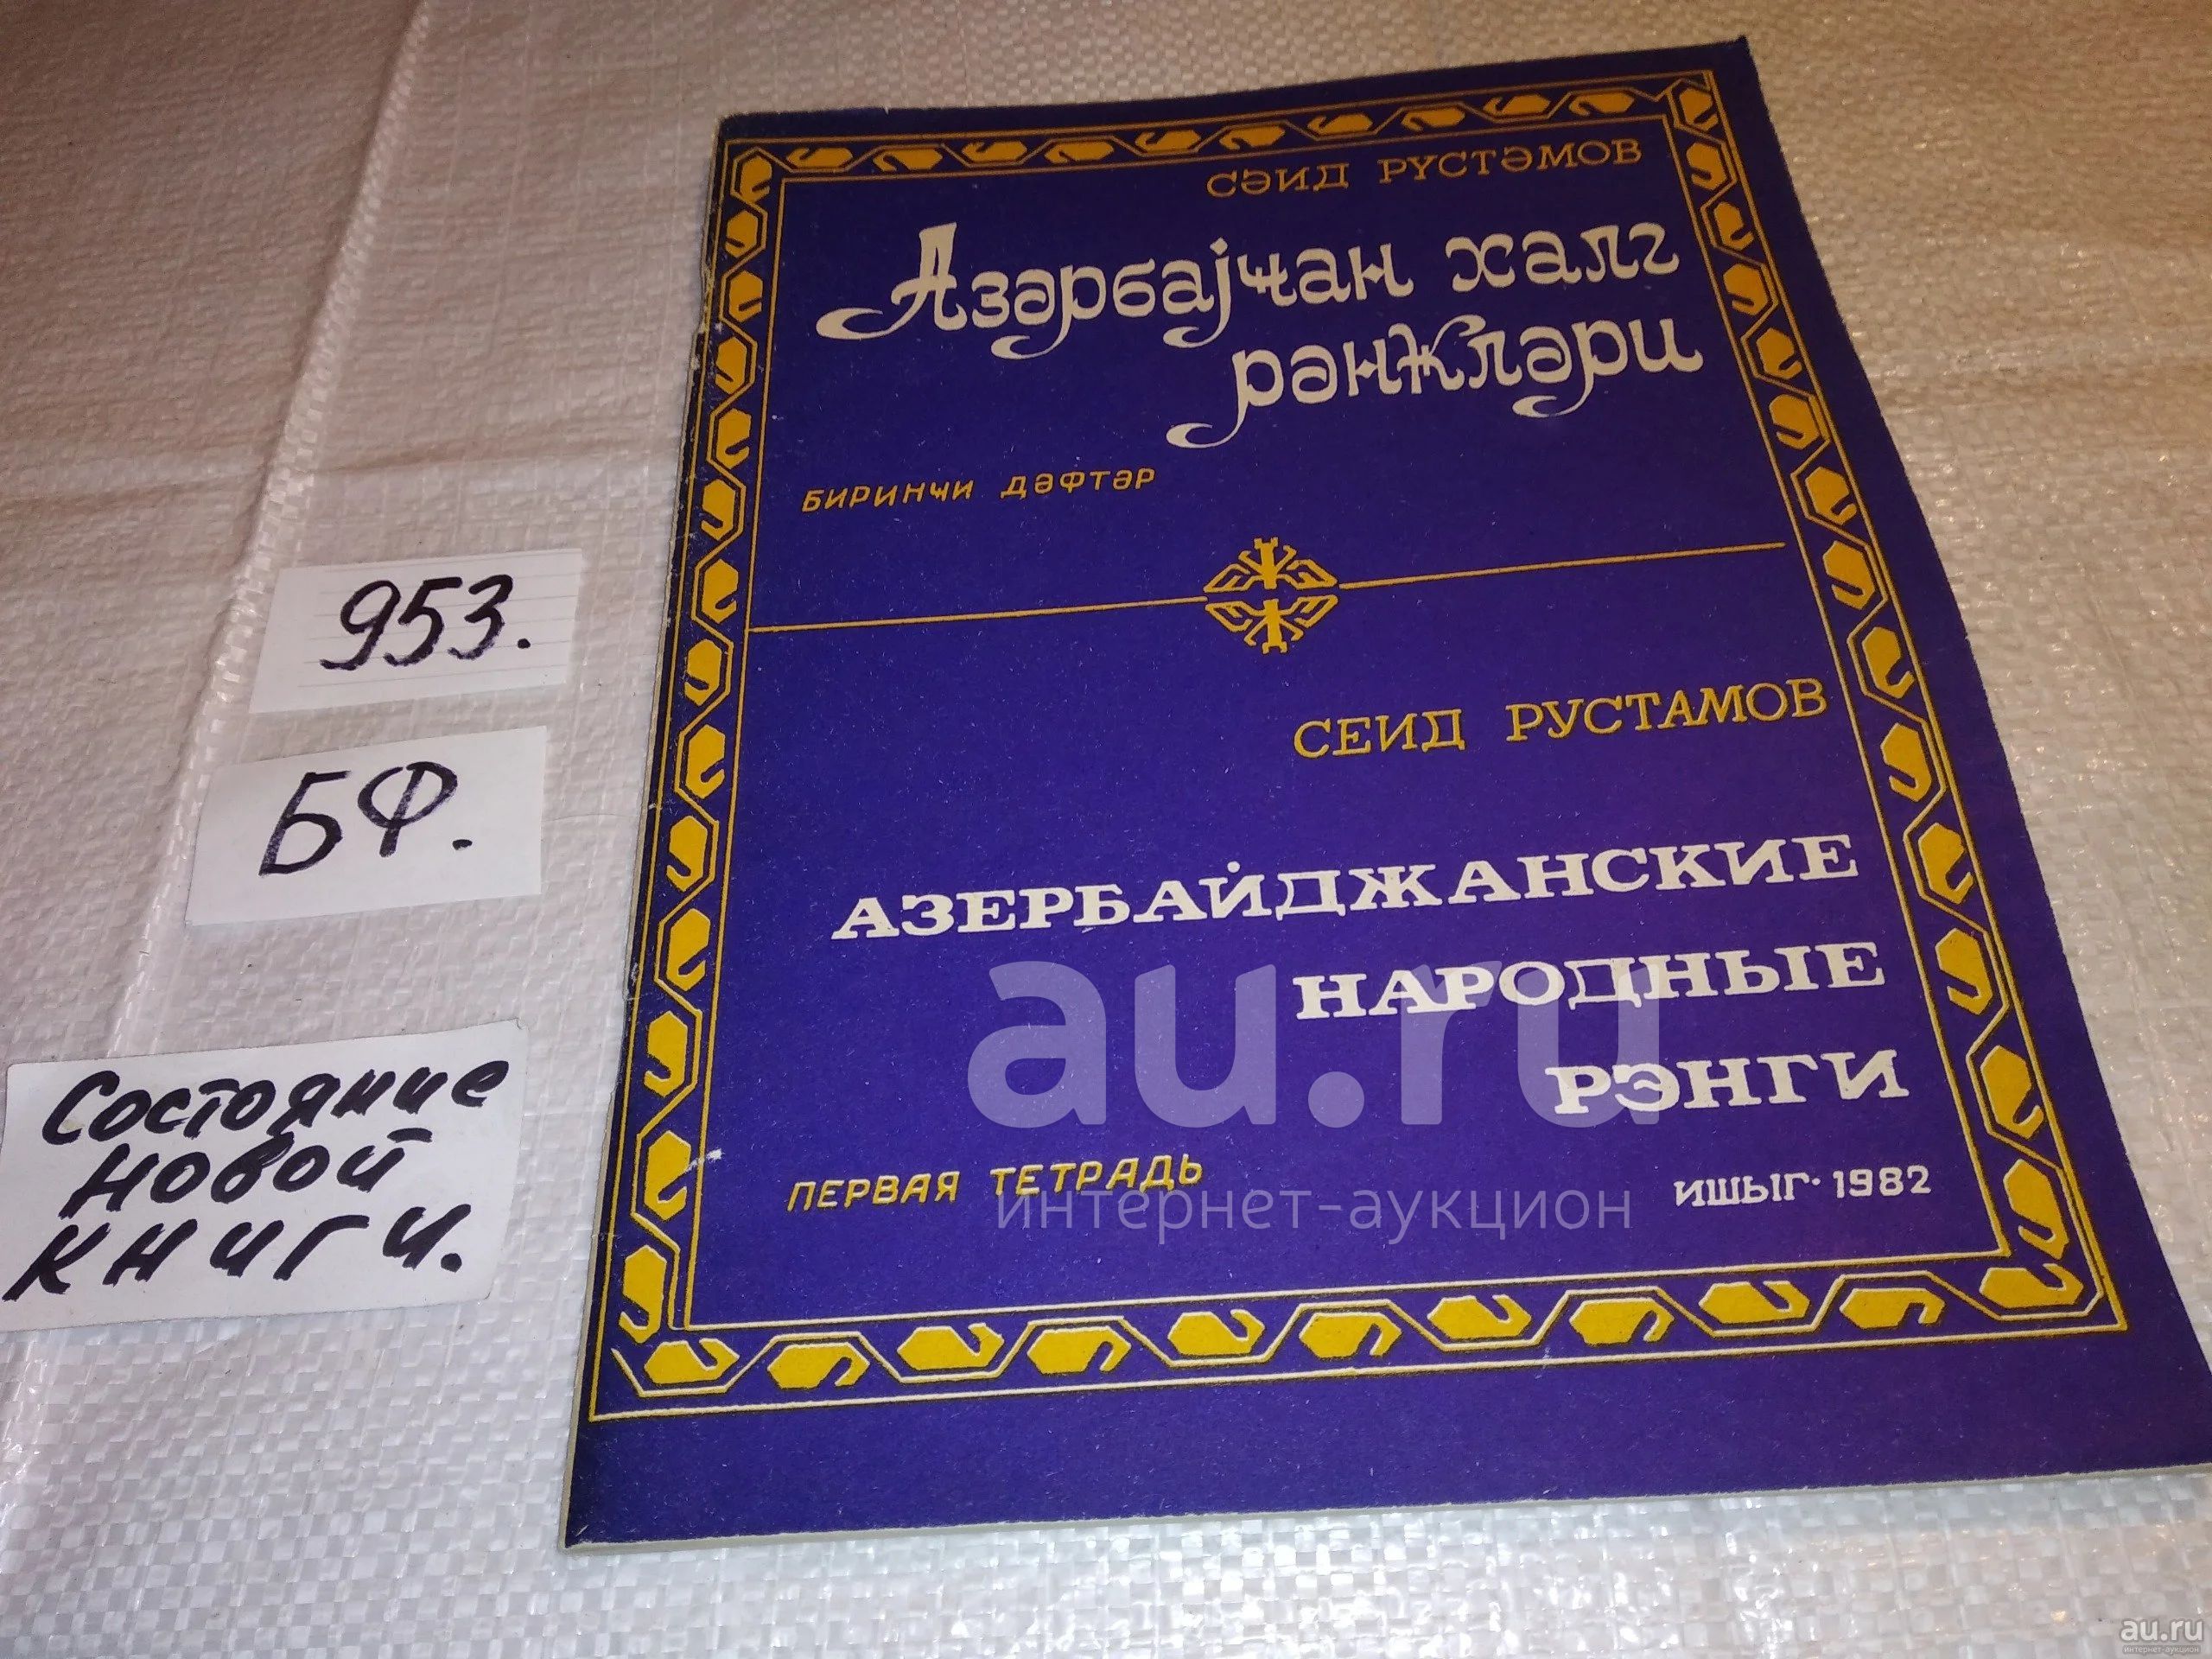 СӘИД РҮСТӘМОВ
Азәрбајҹан халг
рәнҝләри
БИРИНҸИ ДӘФТӘР
СЕИД РУСТАМОВ
АЗЕРБАЙДЖАНСКИЕ
НАРОДНЫЕ
РЭНГИ
ПЕРВАЯ ТЕТРАДЬ
ИШЫГ·1982
953.
БФ.
Состояние
новой
книги.
au.ru
интернет-аукцион
au.ru
интернет-аукцион